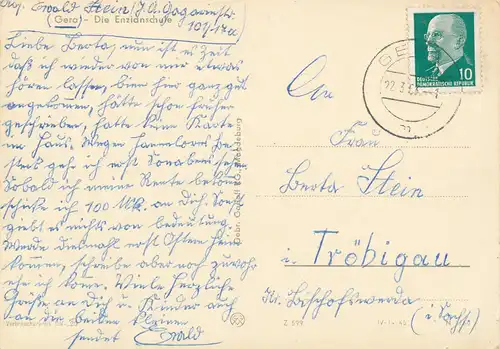 Ewald Stein J.A.Gagarinstr.
(Gera) - Die Enzianschule
101/17a
Liebe Berta, nun ist es Zeit
daß ich wieder von mir etwas
hören lasse, bin hier ganz gut
angekommen, hätte schon früher
geschrieben, hatte keine Karte
im Haus. Wegen Hannelores Be-
steck gehe ich erst Sonabend sehen
Sobald ich meine Rente bekomme
schicke ich 100 Mk. an Dich. Sonst
giebt es nichts von bedeutung.
Werde diesmahl erst Ostern heim
kommen, schreibe aber noch zuvohr
ehe ich komme. Viele herzliche
Grüße an Dich u. Kinder auch
an die beiden kleinen
sendet Ewald
Magdeburg
DEUTSCHE
DEMOKRATISCHE REPUBLIK
10
GE
22.3
An
Frau
Berta Stein
i. Tröbigau
Kr. Bischofswerda
(i. Sachs.)
Z 599